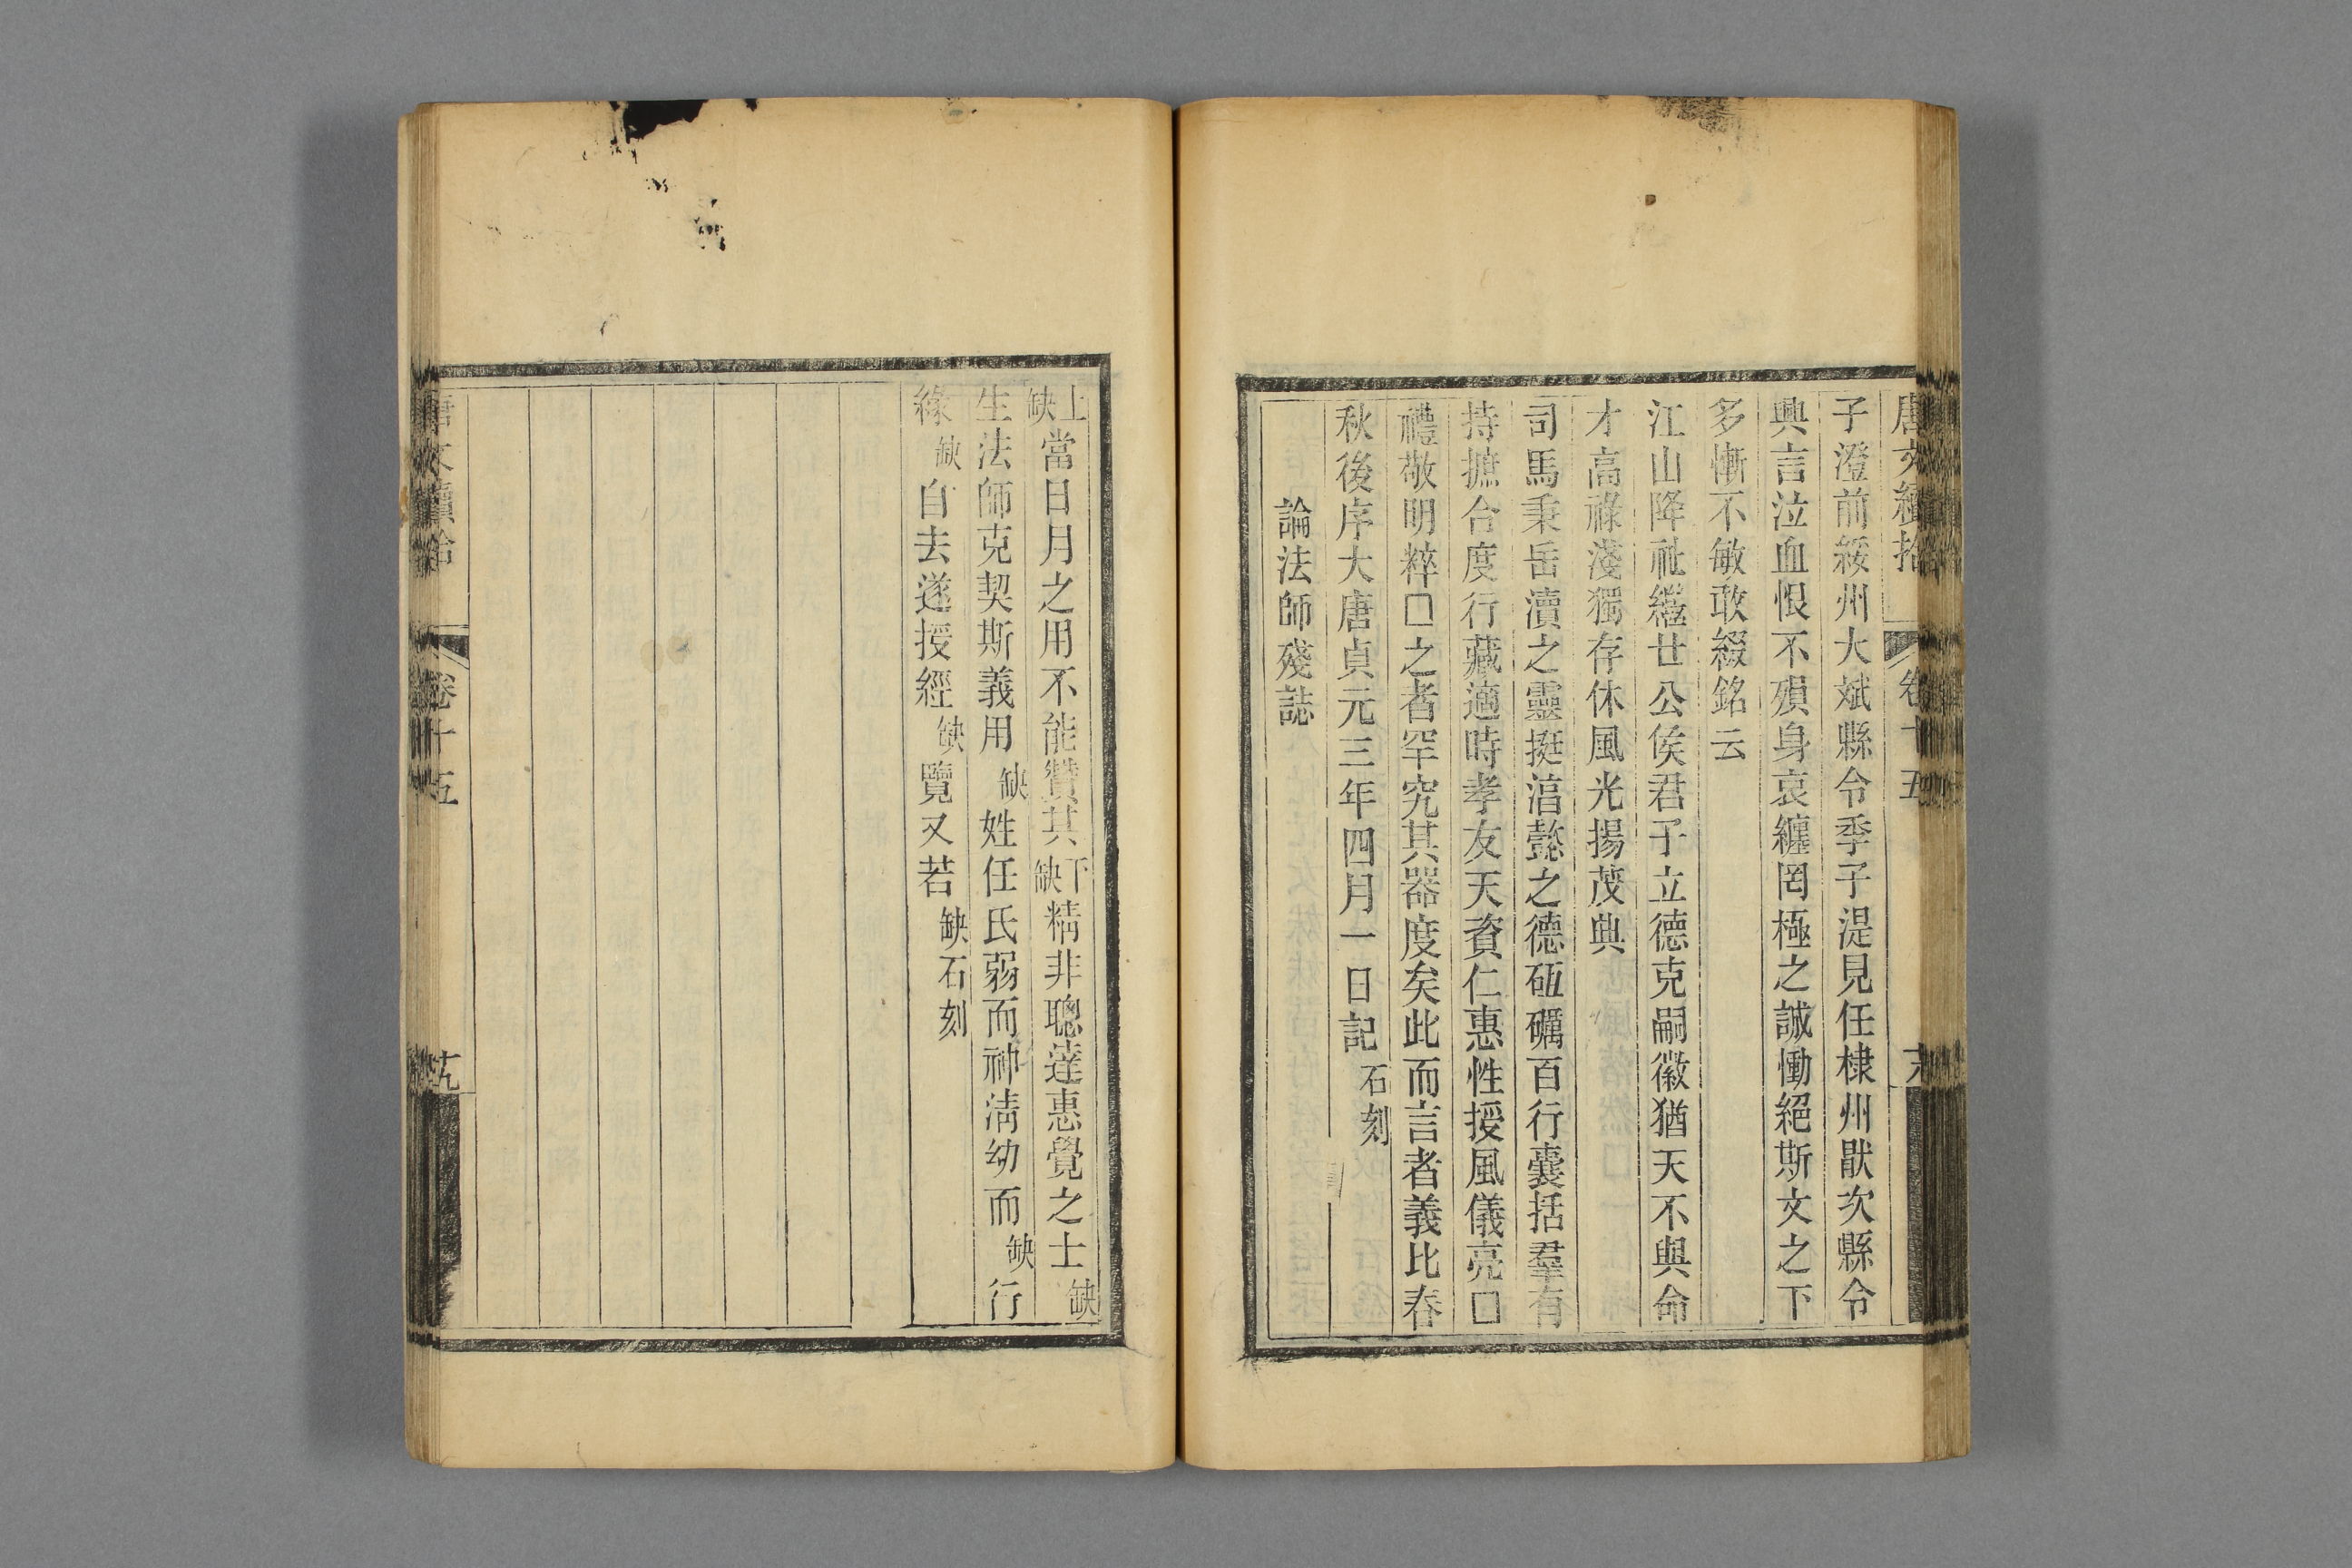 子澄前綏州大斌縣令季子湜見任棣州猒次縣令
興言泣血恨不殞身哀纏罔極之誠慟絕斯文之下
多慚不敏敢綴銘云
江山降祉繼世公侯君子立德克嗣徽猶天不與命
才高祿淺獨存休風光揚茂典
司馬秉岳瀆之靈挺㳷懿之德砥礪百行囊括羣有
持摭合度行藏適時孝友天資仁惠性授風儀亮□
禮敬明粹□之者罕究其器度矣此而言者義比春
秋後序大唐貞元三年四月一日記石刻
論法師殘誌
上缺當日月之用不能贊其下缺精非聰達惠覺之士缺
生法師克契斯義用缺姓任氏弱而神淸幼而缺行
緣缺自去遂授經缺覽又若缺石刻
唐文續拾
卷十五